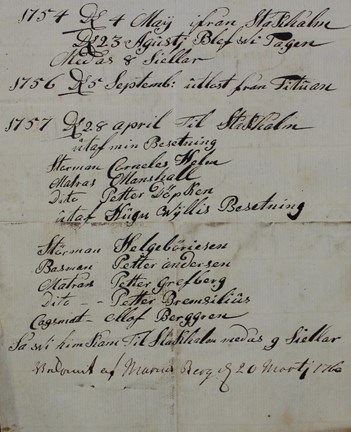 1754 D 4 Maÿ ifrån Ståkhålm
D 23 Agustj Blef wi Tagen
Medas 8 Siellar
1756 D 5 Septemb: utlost från Tituan
1757 D 28 april Til Ståkholm
utaf min Besetning
Sterman Corneles Helm
Matras Manshall
Dito Petter Döpken
utaf Hügu Wÿllis Besetning
Störman Helgeböriesen
Båsman Petter andersen
Matras Petter Grefberg
Dito - - Petter Bremsiliüs
Cagsmat - Ollof Berggren
Så wi kim Skam Til Ståkholm medas 9 Siellar
af Marcus Berg 20 Martj 176